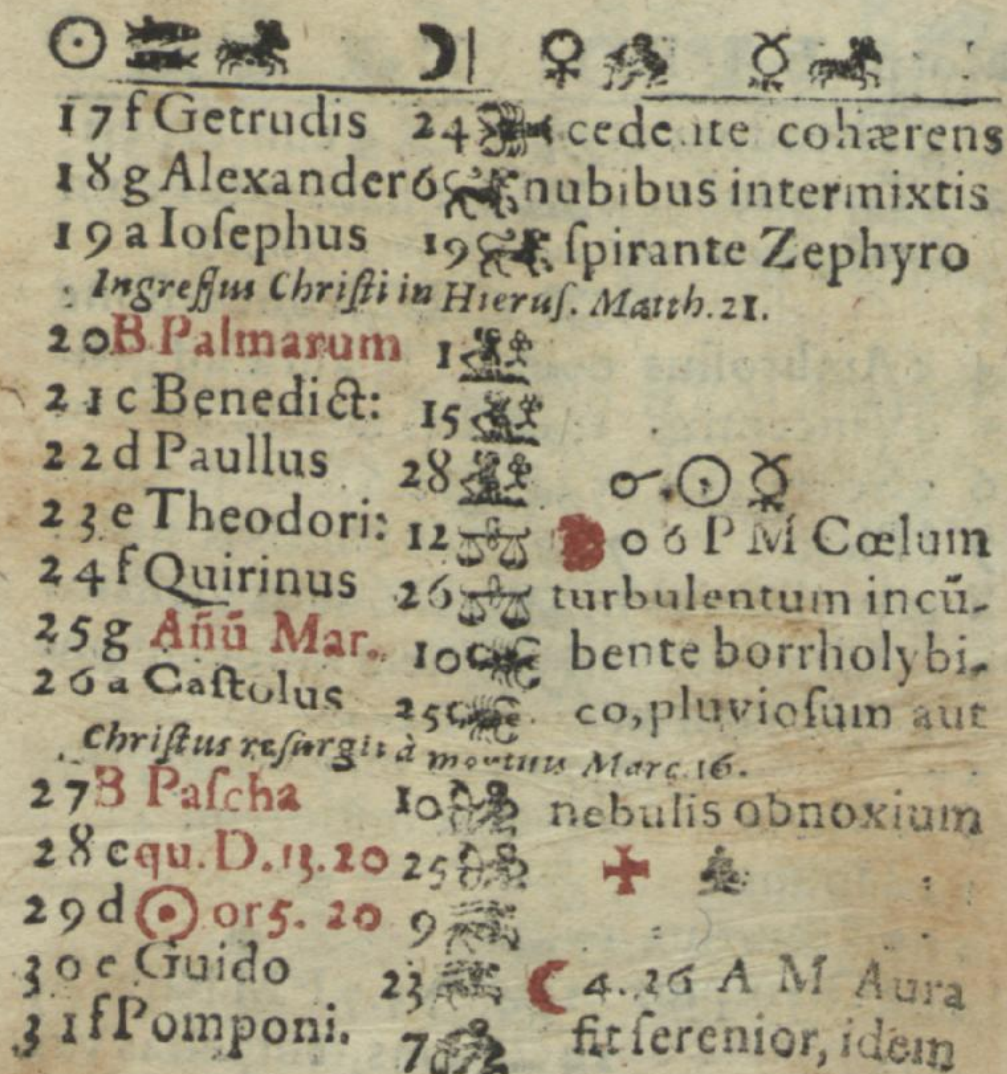 ☉ ♓ ♈ ☽ ♀ ♒ ☿ ♈
17 f Getrudis 24 cedente cohærens
18 g Alexander 6 nubibus intermixtis
19 a Ioſephus 19 ſpirante Zephyro
Ingreſſus Chriſti in Hieruſ. Matth. 21.
20 B Palmarum 1
21 c Benedict: 15
22 d Paullus 28 ☌ ☉ ☿
23 e Theodori: 12 0 6 P M Cœlum
24 f Quirinus 26 turbulentum incū-
25 g Añū Mar. 10 bente borrholybi-
26 a Caſtolus 25 co, pluvioſum aut
Chriſtus reſurgit à mortuis Marc. 16.
27 B Paſcha 10 nebulis obnoxium
28 c qu. D. 13. 20 25 ✠
29 d ☉ or 5. 20 9
30 e Guido 23 ☾ 4. 26 A M Aura
31 f Pomponi. 7 fit ſerenior, idem